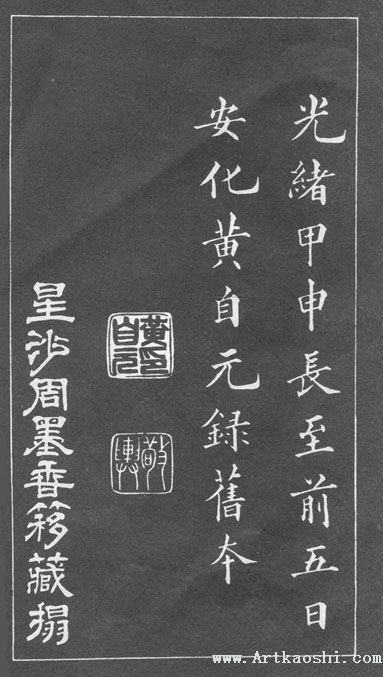 光緒甲申長至前五日
安化黄自元録舊本
黄自元印
敬輿
星沙周墨香簃藏搨
www.Artkaoshi.com